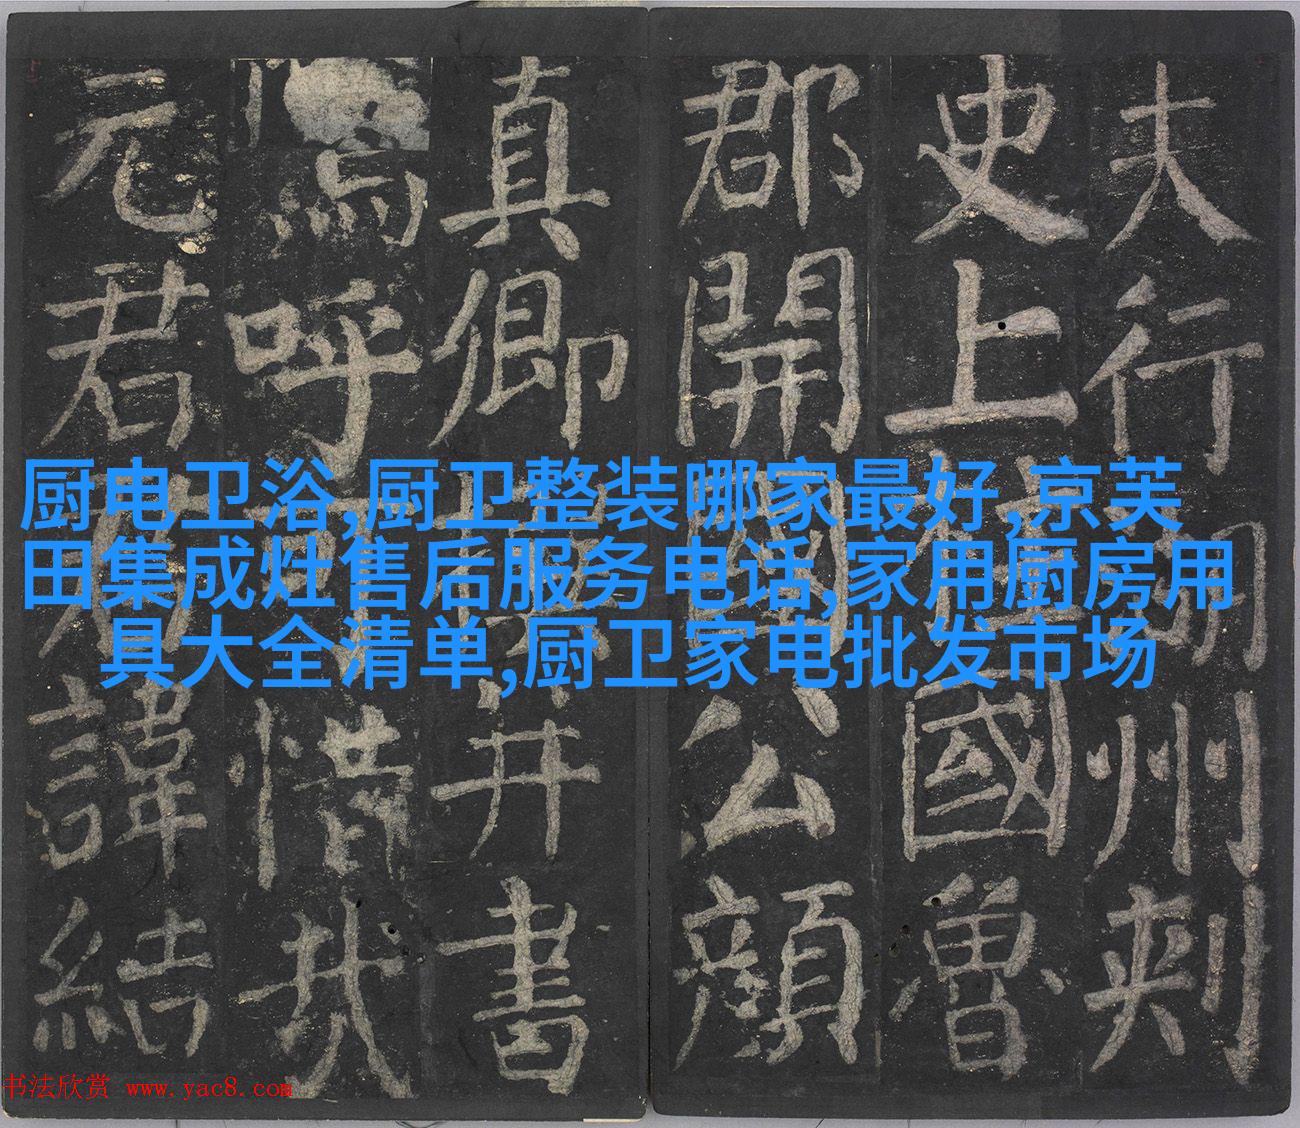 夫行湖州刺
史上柱國魯
郡開國公顔
真卿撰并書
嗚呼可惜哉
元君君諱結
厨电卫浴,厨卫整装哪家最好,京芙
田集成灶售后服务电话,家用厨房用
具大全清单,厨卫家电批发市场
书法欣赏 www.yac8.com